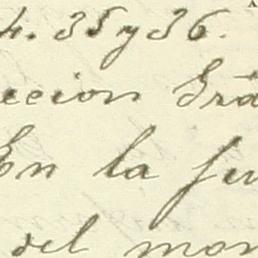 4. 35 y 36.
ccion Grá
En la fu
del mon